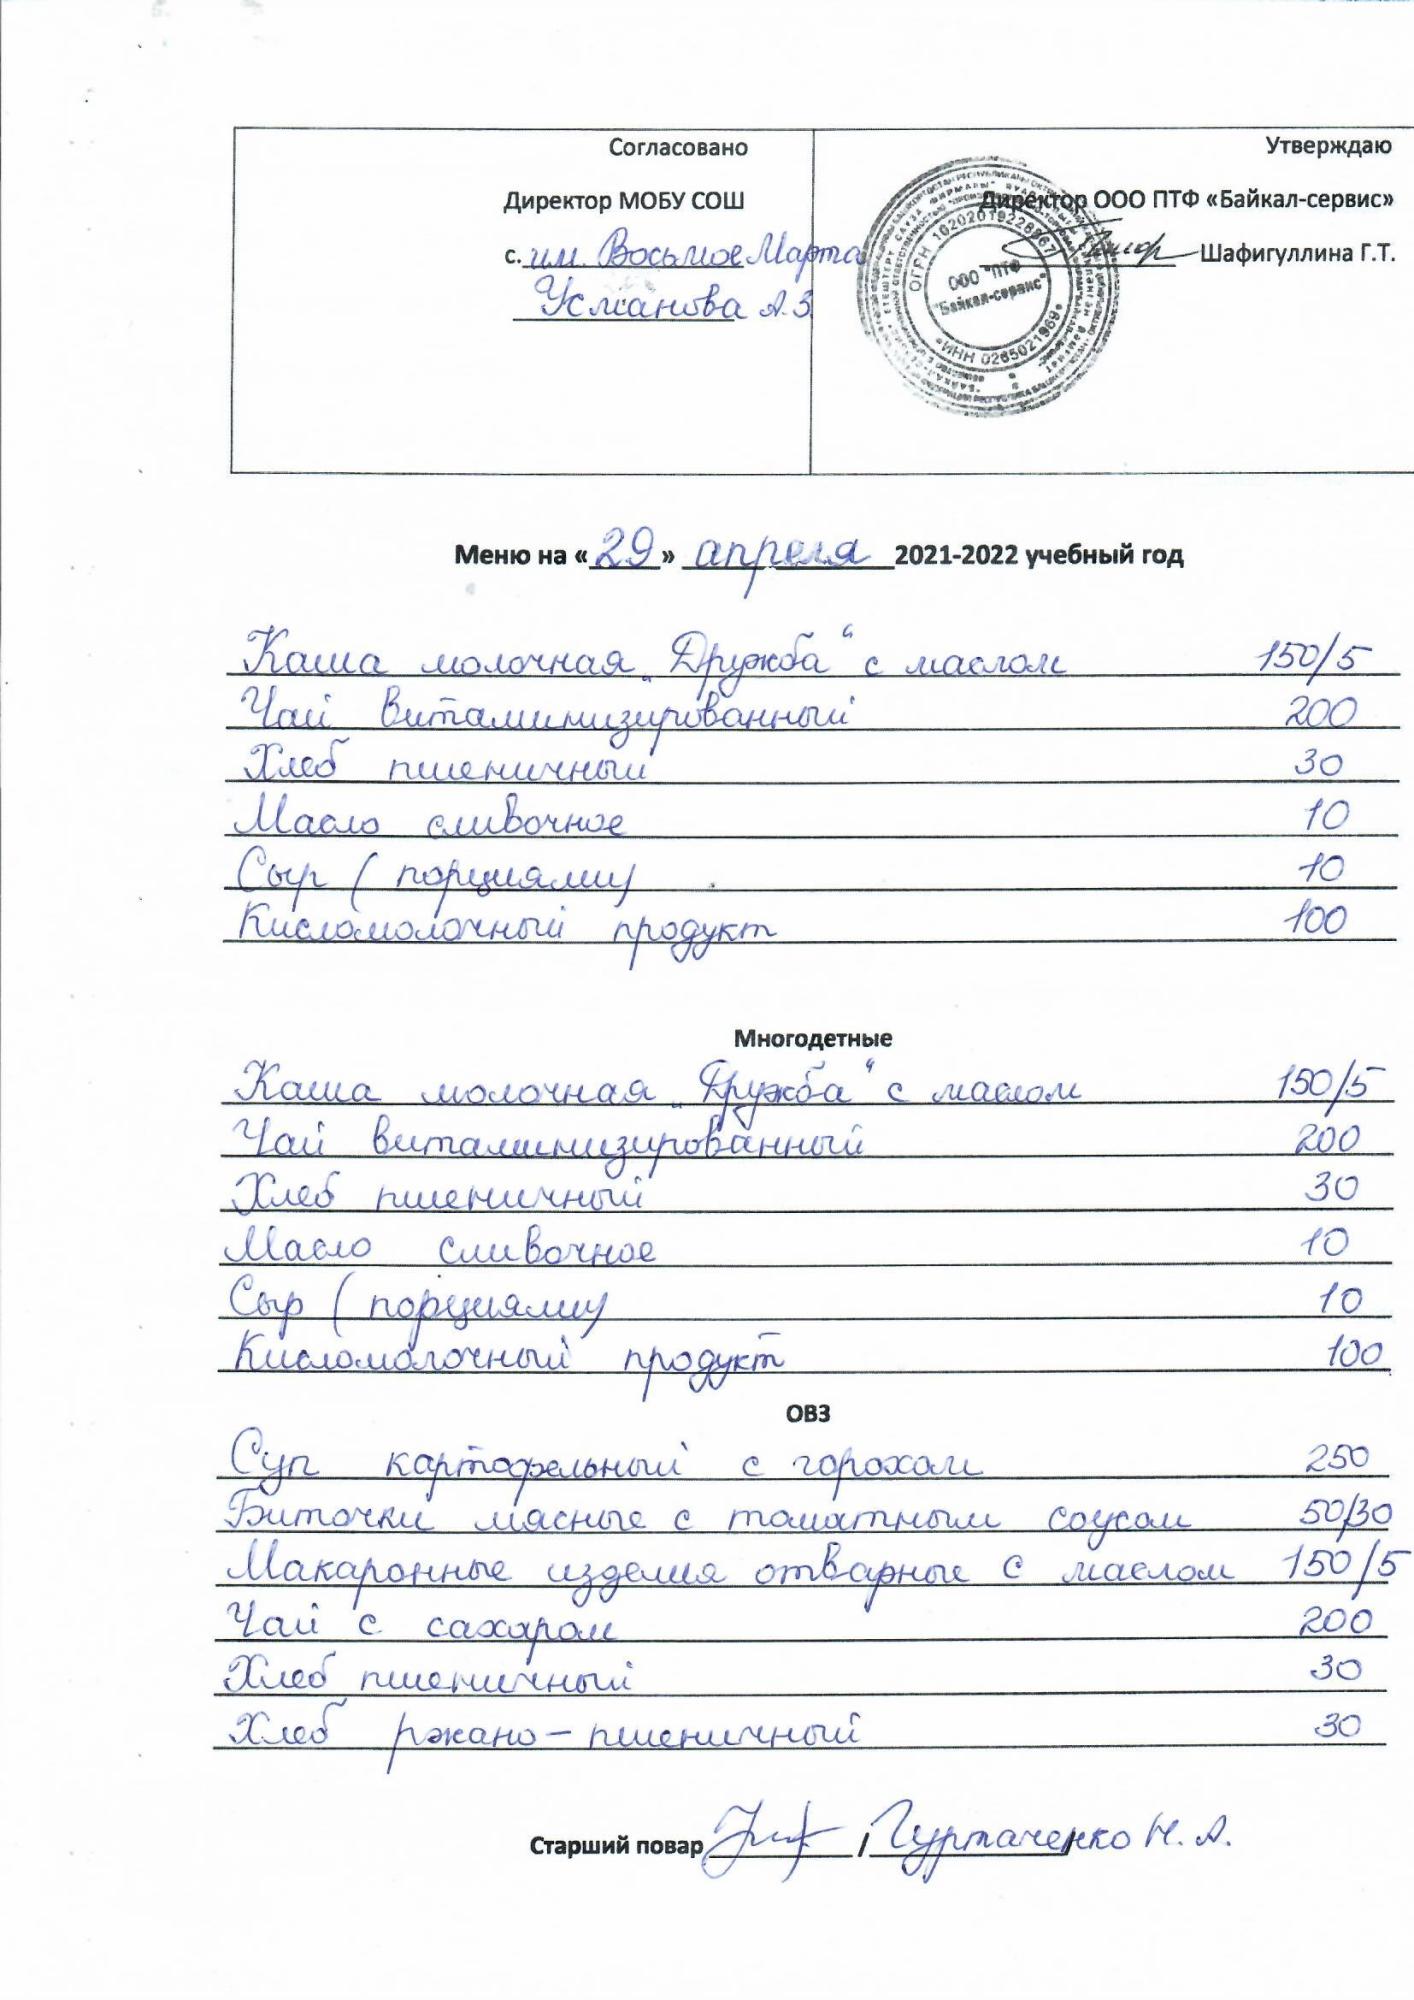 Согласовано
Директор МОБУ СОШ
с. им. Восьмое Марта
Усманова А.З
Утверждаю
Директор ООО ПТФ «Байкал-сервис»
Шафигуллина Г.Т.
ООО "ПТФ
"Байкал-сервис"
Меню на «29» апреля 2021-2022 учебный год
Каша молочная „Дружба“ с маслом 150/5
Чай витаминизированный 200
Хлеб пшеничный 30
Масло сливочное 10
Сыр (порциями) 10
Кисломолочный продукт 100
Многодетные
Каша молочная „Дружба“ с маслом 150/5
Чай витаминизированный 200
Хлеб пшеничный 30
Масло сливочное 10
Сыр (порциями) 10
Кисломолочный продукт 100
ОВЗ
Суп картофельный с горохом 250
Биточки мясные с томатным соусом 50/30
Макаронные изделия отварные с маслом 150/5
Чай с сахаром 200
Хлеб пшеничный 30
Хлеб ржано-пшеничный 30
Старший повар / Н. А. /